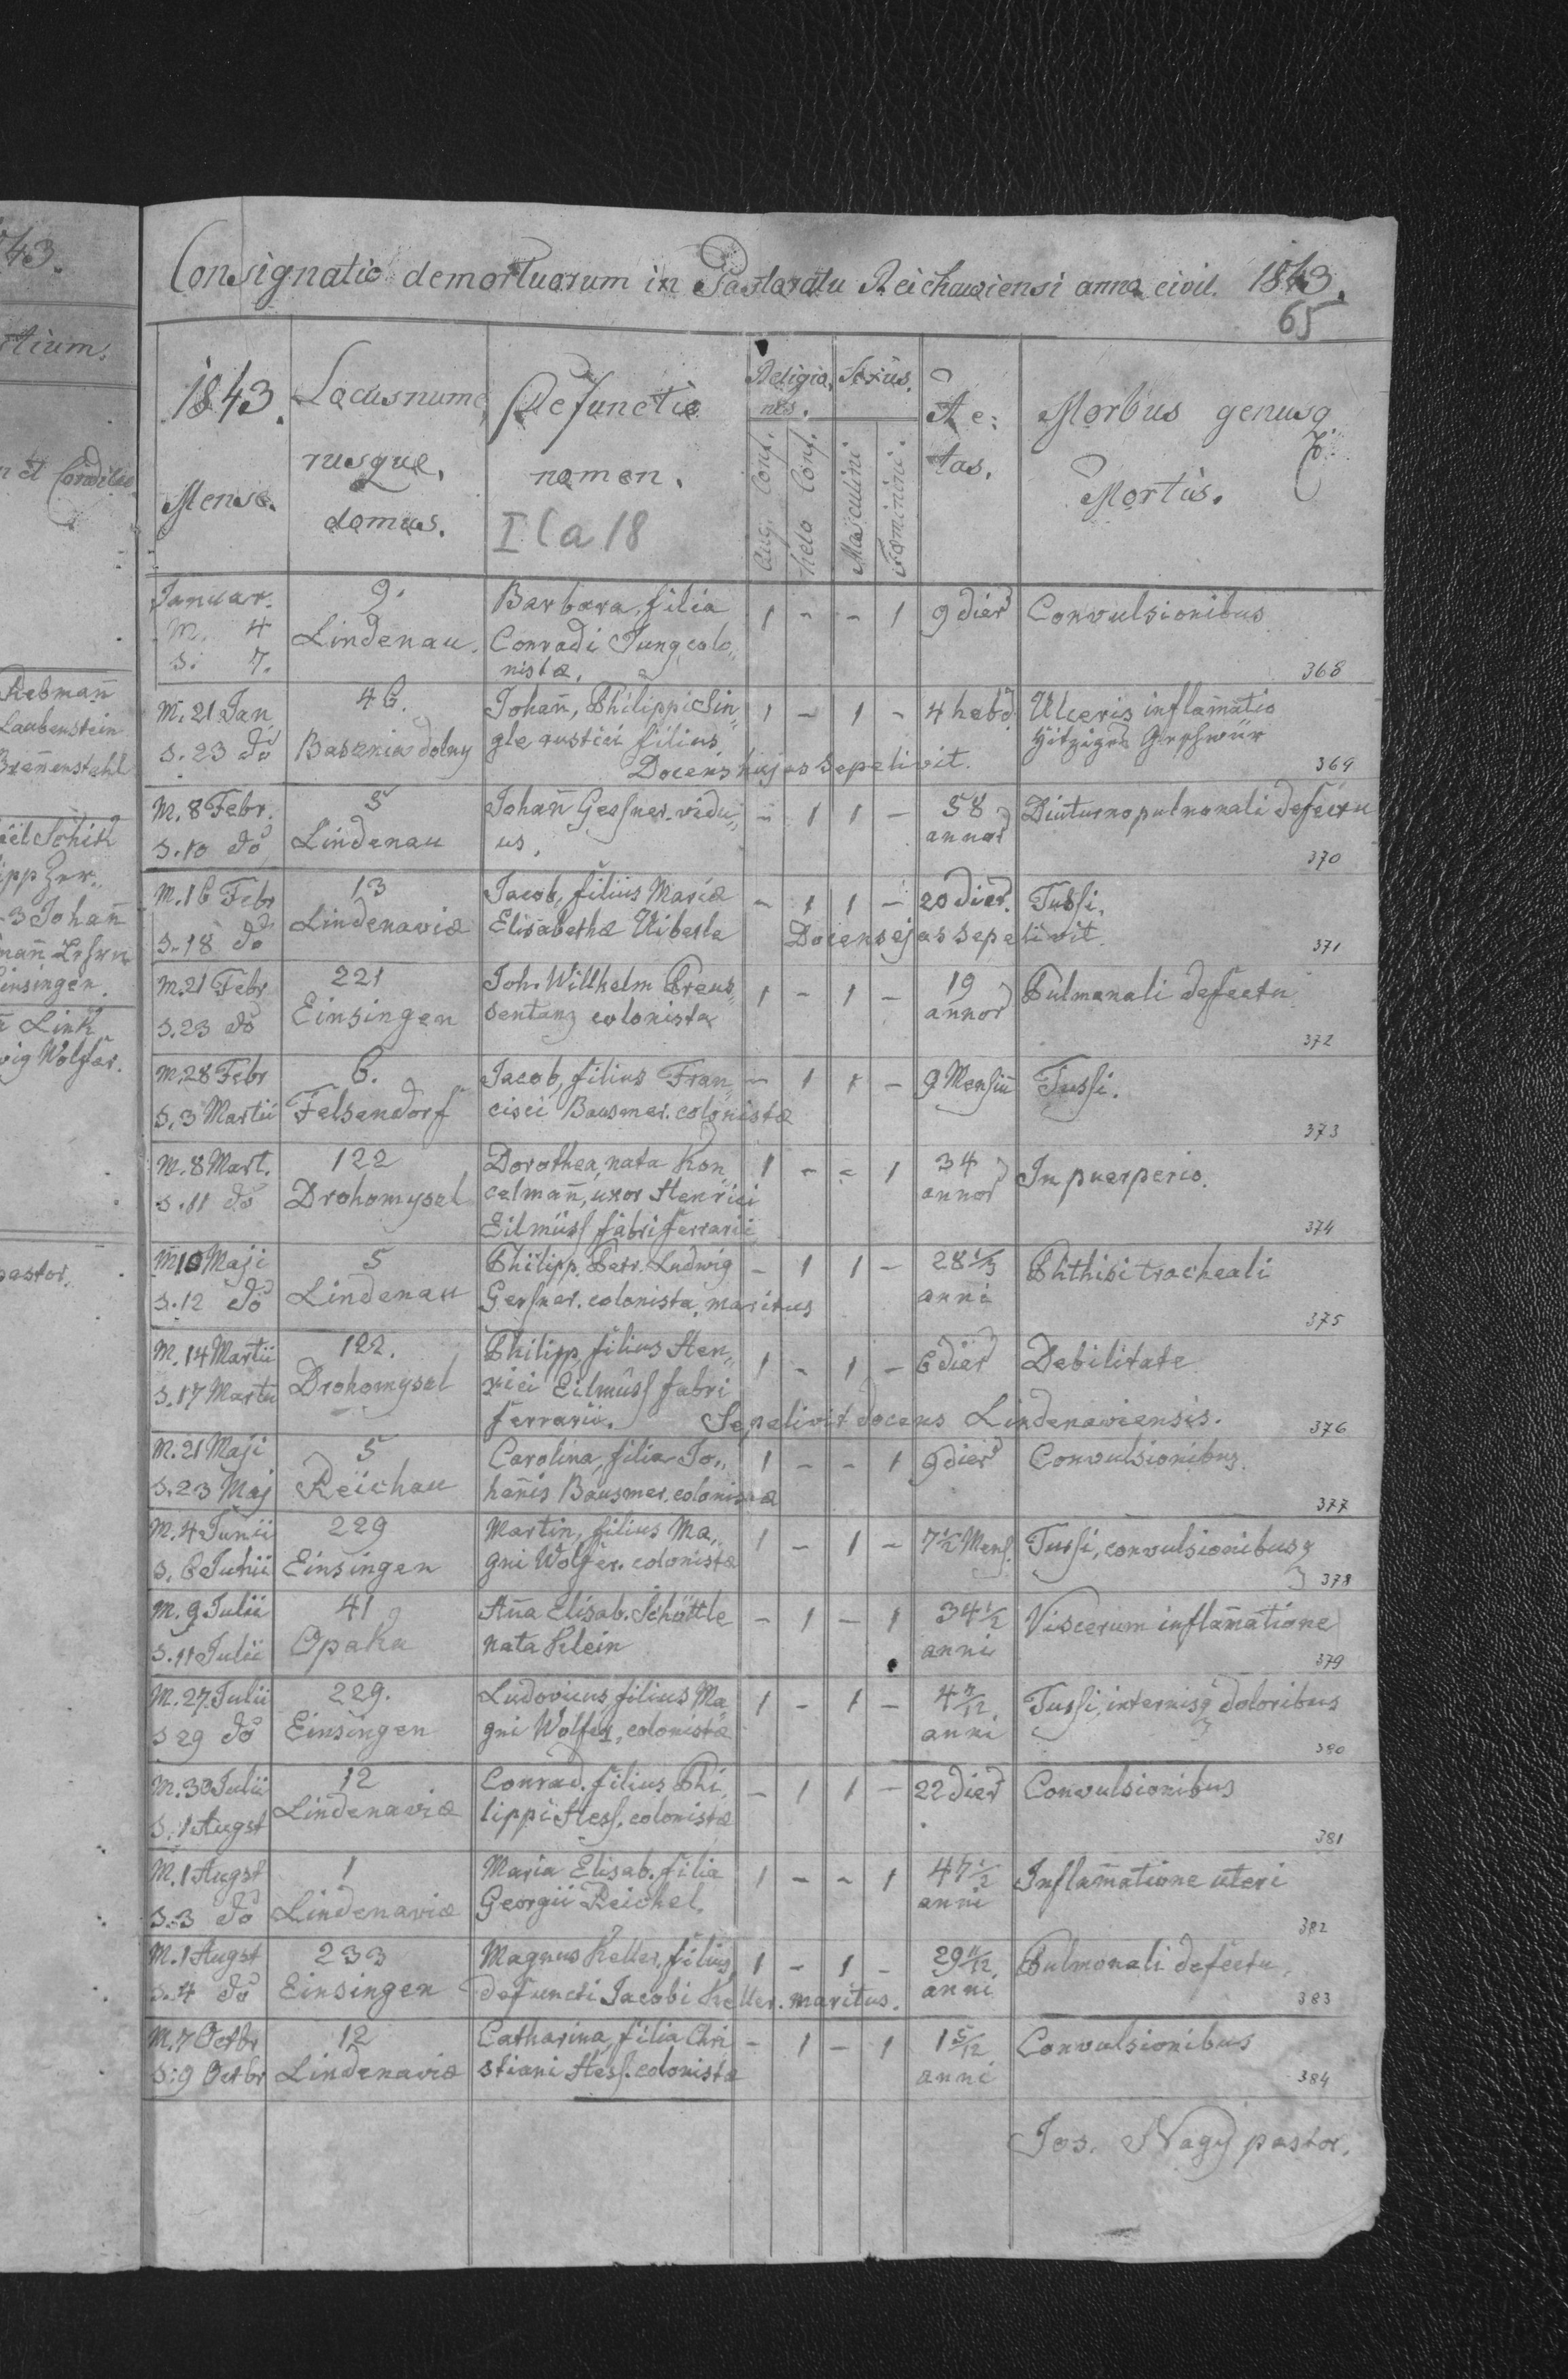 Consignatio demortuorum in Pastoratu Reichauiensi anno civil. 1843.
65
1843.
Mense.
Locus nume
rusque.
domus.
Defuncti
nomen.
I C a 18
Religio
nes.
Sexus.
Aug. Conf.
Helv Conf.
Masculini
Fœminini.
Ae:
tas.
Morbus genusq
Mortis.
Januar. 9. Barbara, filia
M. 4 Lindenau. Conradi Jung colo 1 - - 1 9 dier Convulsionibus
S. 7. nistæ. 368
M. 21 Jan 46. Johañ, Philippi Sin 1 - 1 - 4 hebd Ulceris inflam̃atio
S. 23 do Basznia dolny gle rustici filius hitziges Geschwür
Docens hujas sepelivit. 369
M. 8 Febr. 5 Johañ Gessner. vidu - 1 1 - 58 Diuturno pulmonali defectu
S. 10 do Lindenau us. annor 370
M. 16 Febr 13 Jacob, filius Mariæ - 1 1 - 20 dier. Tussi.
S. 18 do Lindenaviæ Elisabethæ Uiberle Docens ejas sepelivit. 371
M. 21 Febr 221 Joh. Willhelm Preus 1 - 1 - 19 Pulmonali defectu
S. 23 do Einsingen sentanz colonista annor 372
M. 28 Febr 6. Jacob, filius Fran - 1 1 - 9 Mensiu Tussi.
S. 3 Martii Felsendorf cisci Bausmer. colonistæ 373
M. 8 Mart. 122 Dorothea, nata Kon 1 - - 1 34 In puerperio.
S. 11 do Drohomysel celmañ, uxor Henrici annor
Eilmüss fabri ferrarii 374
M 10 Maji 5 Philipp. Petr. Ludwig - 1 1 - 28 1/3 Phthisi tracheali
S. 12 do Lindenau Gessner. colonista, maritus anni 375
M. 14 Martii 122. Philipp filius Hen 1 - 1 - 6 dier Debilitate
S. 17 Martii Drohomysel rici Eilmüss fabri
ferrarii. Sepelivit docens Lindenaviensis. 376
M. 21 Maji 5 Carolina, filia Jo 1 - - 1 9 dier Convulsionibus.
S. 23 Maj Reichau hañis Bausmer, colonistæ 377
M. 4 Junii 229 Martin, filius Ma 1 - 1 - 7 1/2 Mens. Tussi, convulsionibusq
S. 6 Junii Einsingen gni Wolfer. colonistæ 378
M. 9 Julii 41 Añа Elisab. Schöttle - 1 - 1 34 1/2 Viscerum inflam̃atione
S. 11 Julii Opaka nata Klein anni 379
M. 27. Julii 229. Ludovicus, filius Ma 1 - 1 - 4 Tussi, internisq doloribus
S 29 do Einsingen gni Wolfer, colonistæ anni 380
M. 30 Julii 12 Conrad. filius Phi - 1 1 - 22 dier Convulsionibus
S. 1 Augst Lindenaviæ lippi Hess. colonistæ 381
M. 1 Augst 1 Maria Elisab. filia 1 - - 1 47 1/2 Inflam̃atione uteri
S. 3 do Lindenaviæ Georgii Reichel. anni 382
M. 1 Augst 233 Magnus Keller, filius 1 - 1 - 29 11/12 Pulmonali defectu.
S. 4 do Einsingen defuncti Jacobi Keller. maritus. anni 383
M. 7 Octbr 12 Catharina, filia Chri - 1 - 1 1 5/12 Convulsionibus
S: 9 Octbr Lindenaviæ stiani Hess. colonistæ anni 384
Jos. Nagy pastor.
43.
Rebmañ
Laubenstein
Breñenstahl
Johañ
insingen.
Link
Wolfer.
pastor.